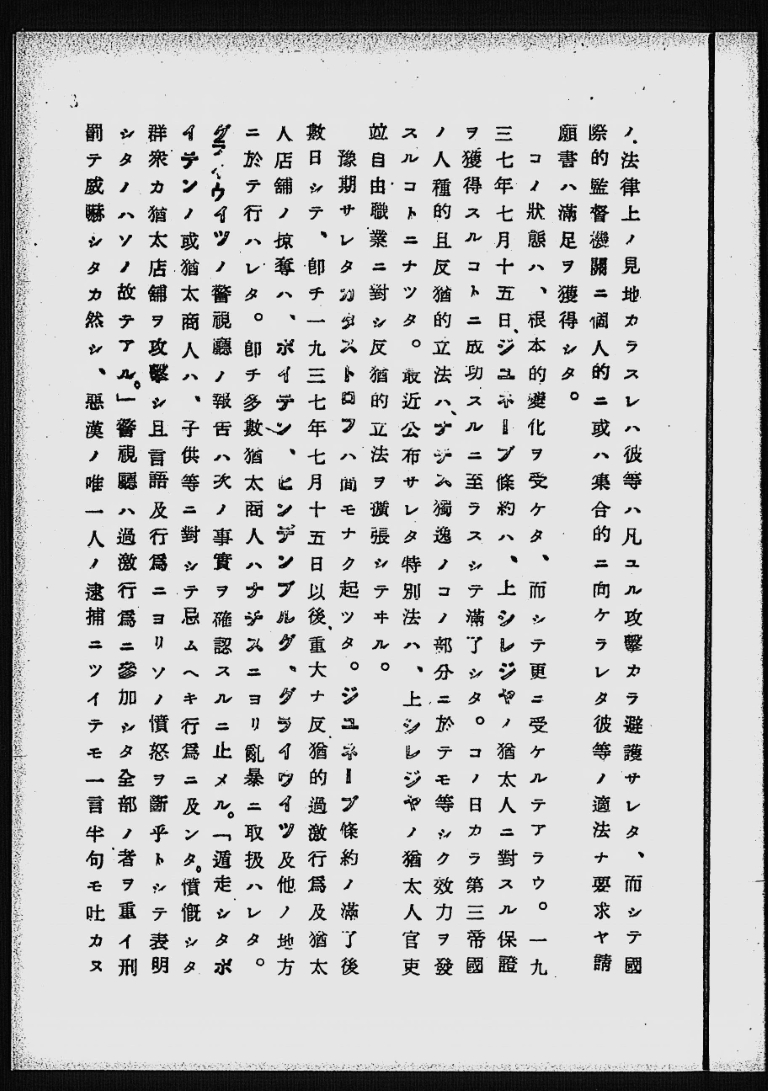 ノ法律上ノ見地カラスレハ彼等ハ凡ユル攻擊カラ避護サレタ、而シテ國
際的監督機關ニ個人的ニ或ハ集合的ニ向ケラレタ彼等ノ適法ナ要求ヤ請
願書ハ滿足ヲ獲得シタ。
コノ狀態ハ、根本的變化ヲ受ケタ、而シテ更ニ受ケルテアラウ。一九
三七年七月十五日、ジユネーブ條約ハ、上シレジヤノ猶太人ニ對スル保證
ヲ獲得スルコトニ成功スルニ至ラスシテ滿了シタ。コノ日カラ第三帝國
ノ人種的且反猶的立法ハ、ナチス獨逸ノコノ部分ニ於テモ等シク效力ヲ發
スルコトニナツタ。最近公布サレタ特別法ハ、上シレジヤノ猶太人官吏
竝自由職業ニ對シ反猶的立法ヲ擴張シテヰル。
豫期サレタカタストロフハ間モナク起ツタ。ジユネーブ條約ノ滿了後
數日シテ、卽チ一九三七年七月十五日以後、重大ナ反猶的過激行爲及猶太
人店舖ノ掠奪ハ、ボイテン、ヒンデンブルグ、グライウイツ及他ノ地方
ニ於テ行ハレタ。卽チ多數猶太商人ハナチスニヨリ亂暴ニ取扱ハレタ。
グライウイツノ警視廳ノ報吿ハ次ノ事實ヲ確認スルニ止メル。「遁走シタボ
イテンノ或猶太商人ハ、子供等ニ對シテ忌ムヘキ行爲ニ及ンタ。憤慨シタ
群衆カ猶太店舖ヲ攻擊シ且言語及行爲ニヨリソノ憤怒ヲ斷乎トシテ表明
シタノハソノ故テアル。」警視廳ハ過激行爲ニ參加シタ全部ノ者ヲ重イ刑
罰テ威嚇シタカ然シ、惡漢ノ唯一人ノ逮捕ニツイテモ一言半句モ吐カヌ